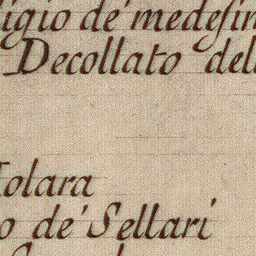 ligio de' medesim
Decollato dell
Molara
o de' Sellari